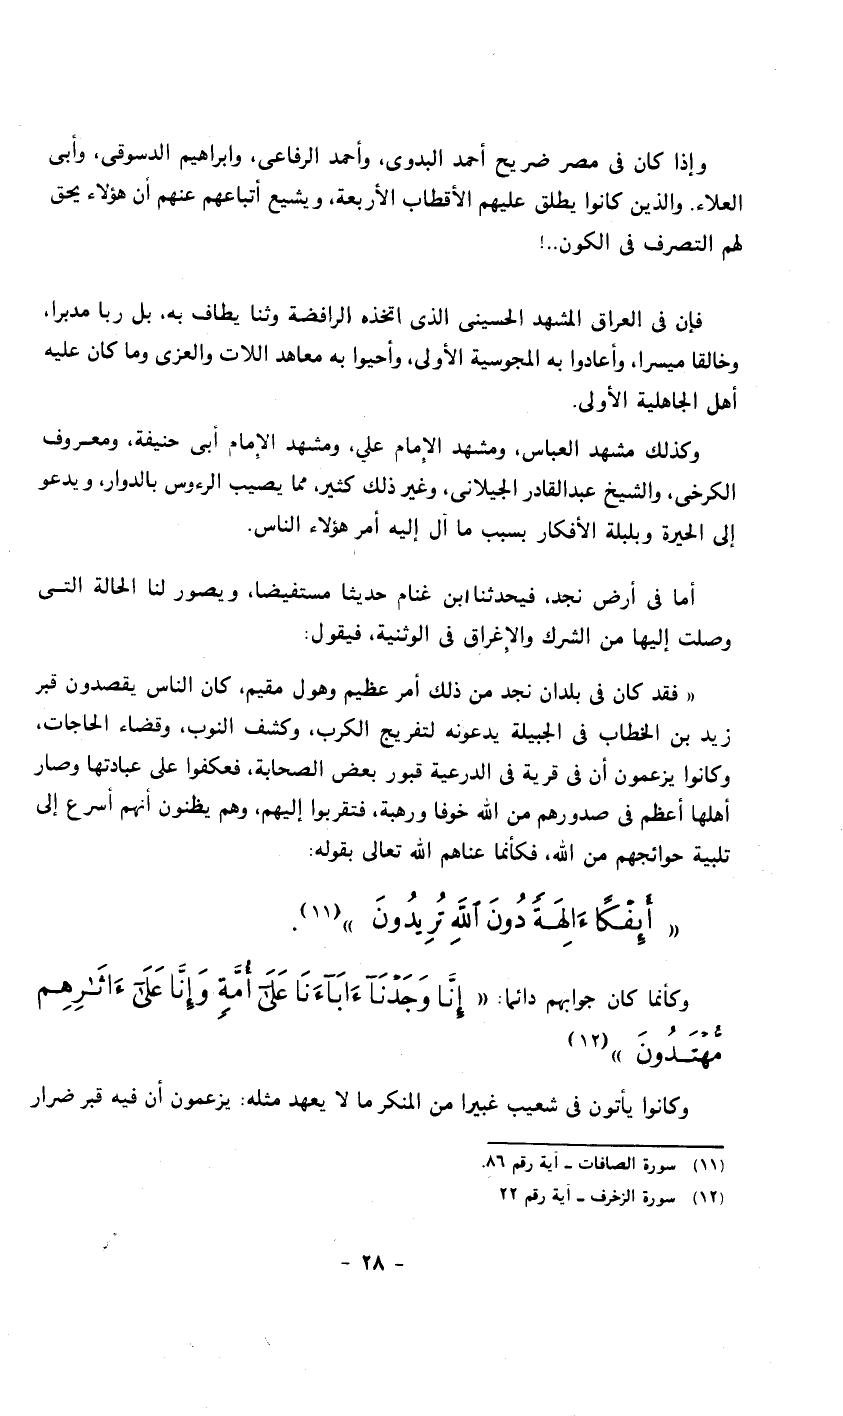 وإذا كان فى مصر ضريح أحمد البدوى، وأحمد الرفاعى، وابراهيم الدسوقى، وأبى
العلاء. والذين كانوا يطلق عليهم الأقطاب الأربعة، ويشيع أتباعهم عنهم أن هؤلاء يحق
لهم التصرف فى الكون..!
فإن فى العراق المشهد الحسينى الذى اتخذه الرافضة وثنا يطاف به، بل ربا مدبرا،
وخالقا ميسرا، وأعادوا به المجوسية الأولى، وأحيوا به معاهد اللات والعزى وما كان عليه
أهل الجاهلية الأولى.
وكذلك مشهد العباس، ومشهد الإمام علي، ومشهد الإمام أبى حنيفة، ومعروف
الكرخى، والشيخ عبدالقادر الجيلانى، وغير ذلك كثير، مما يصيب الرءوس بالدوار، ويدعو
إلى الحيرة وبلبلة الأفكار بسبب ما آل إليه أمر هؤلاء الناس.
أما فى أرض نجد، فيحدثنا ابن غنام حديثا مستفيضا، ويصور لنا الحالة التى
وصلت إليها من الشرك والإغراق فى الوثنية، فيقول:
« فقد كان فى بلدان نجد من ذلك أمر عظيم وهول مقيم، كان الناس يقصدون قبر
زيد بن الخطاب فى الجبيلة يدعونه لتفريج الكرب، وكشف النوب، وقضاء الحاجات،
وكانوا يزعمون أن فى قرية فى الدرعية قبور بعض الصحابة، فعكفوا على عبادتها وصار
أهلها أعظم فى صدورهم من الله خوفا ورهبة، فتقربوا إليهم، وهم يظنون أنهم أسرع إلى
تلبية حوائجهم من الله، فكأنما عناهم الله تعالى بقوله:
« أَئِفْكًا ءَالِهَةً دُونَ ٱللَّهِ تُرِيدُونَ »(١١).
وكأنما كان جوابهم دائما: « إِنَّا وَجَدْنَآ ءَابَآءَنَا عَلَىٰٓ أُمَّةٍ وَإِنَّا عَلَىٰٓ ءَاثَٰرِهِم
مُّهْتَدُونَ »(١٢)
وكانوا يأتون فى شعيب غبيرا من المنكر ما لا يعهد مثله: يزعمون أن فيه قبر ضرار
(١١) سورة الصافات ـ آية رقم ٨٦.
(١٢) سورة الزخرف ـ آية رقم ٢٢
- ٢٨ -